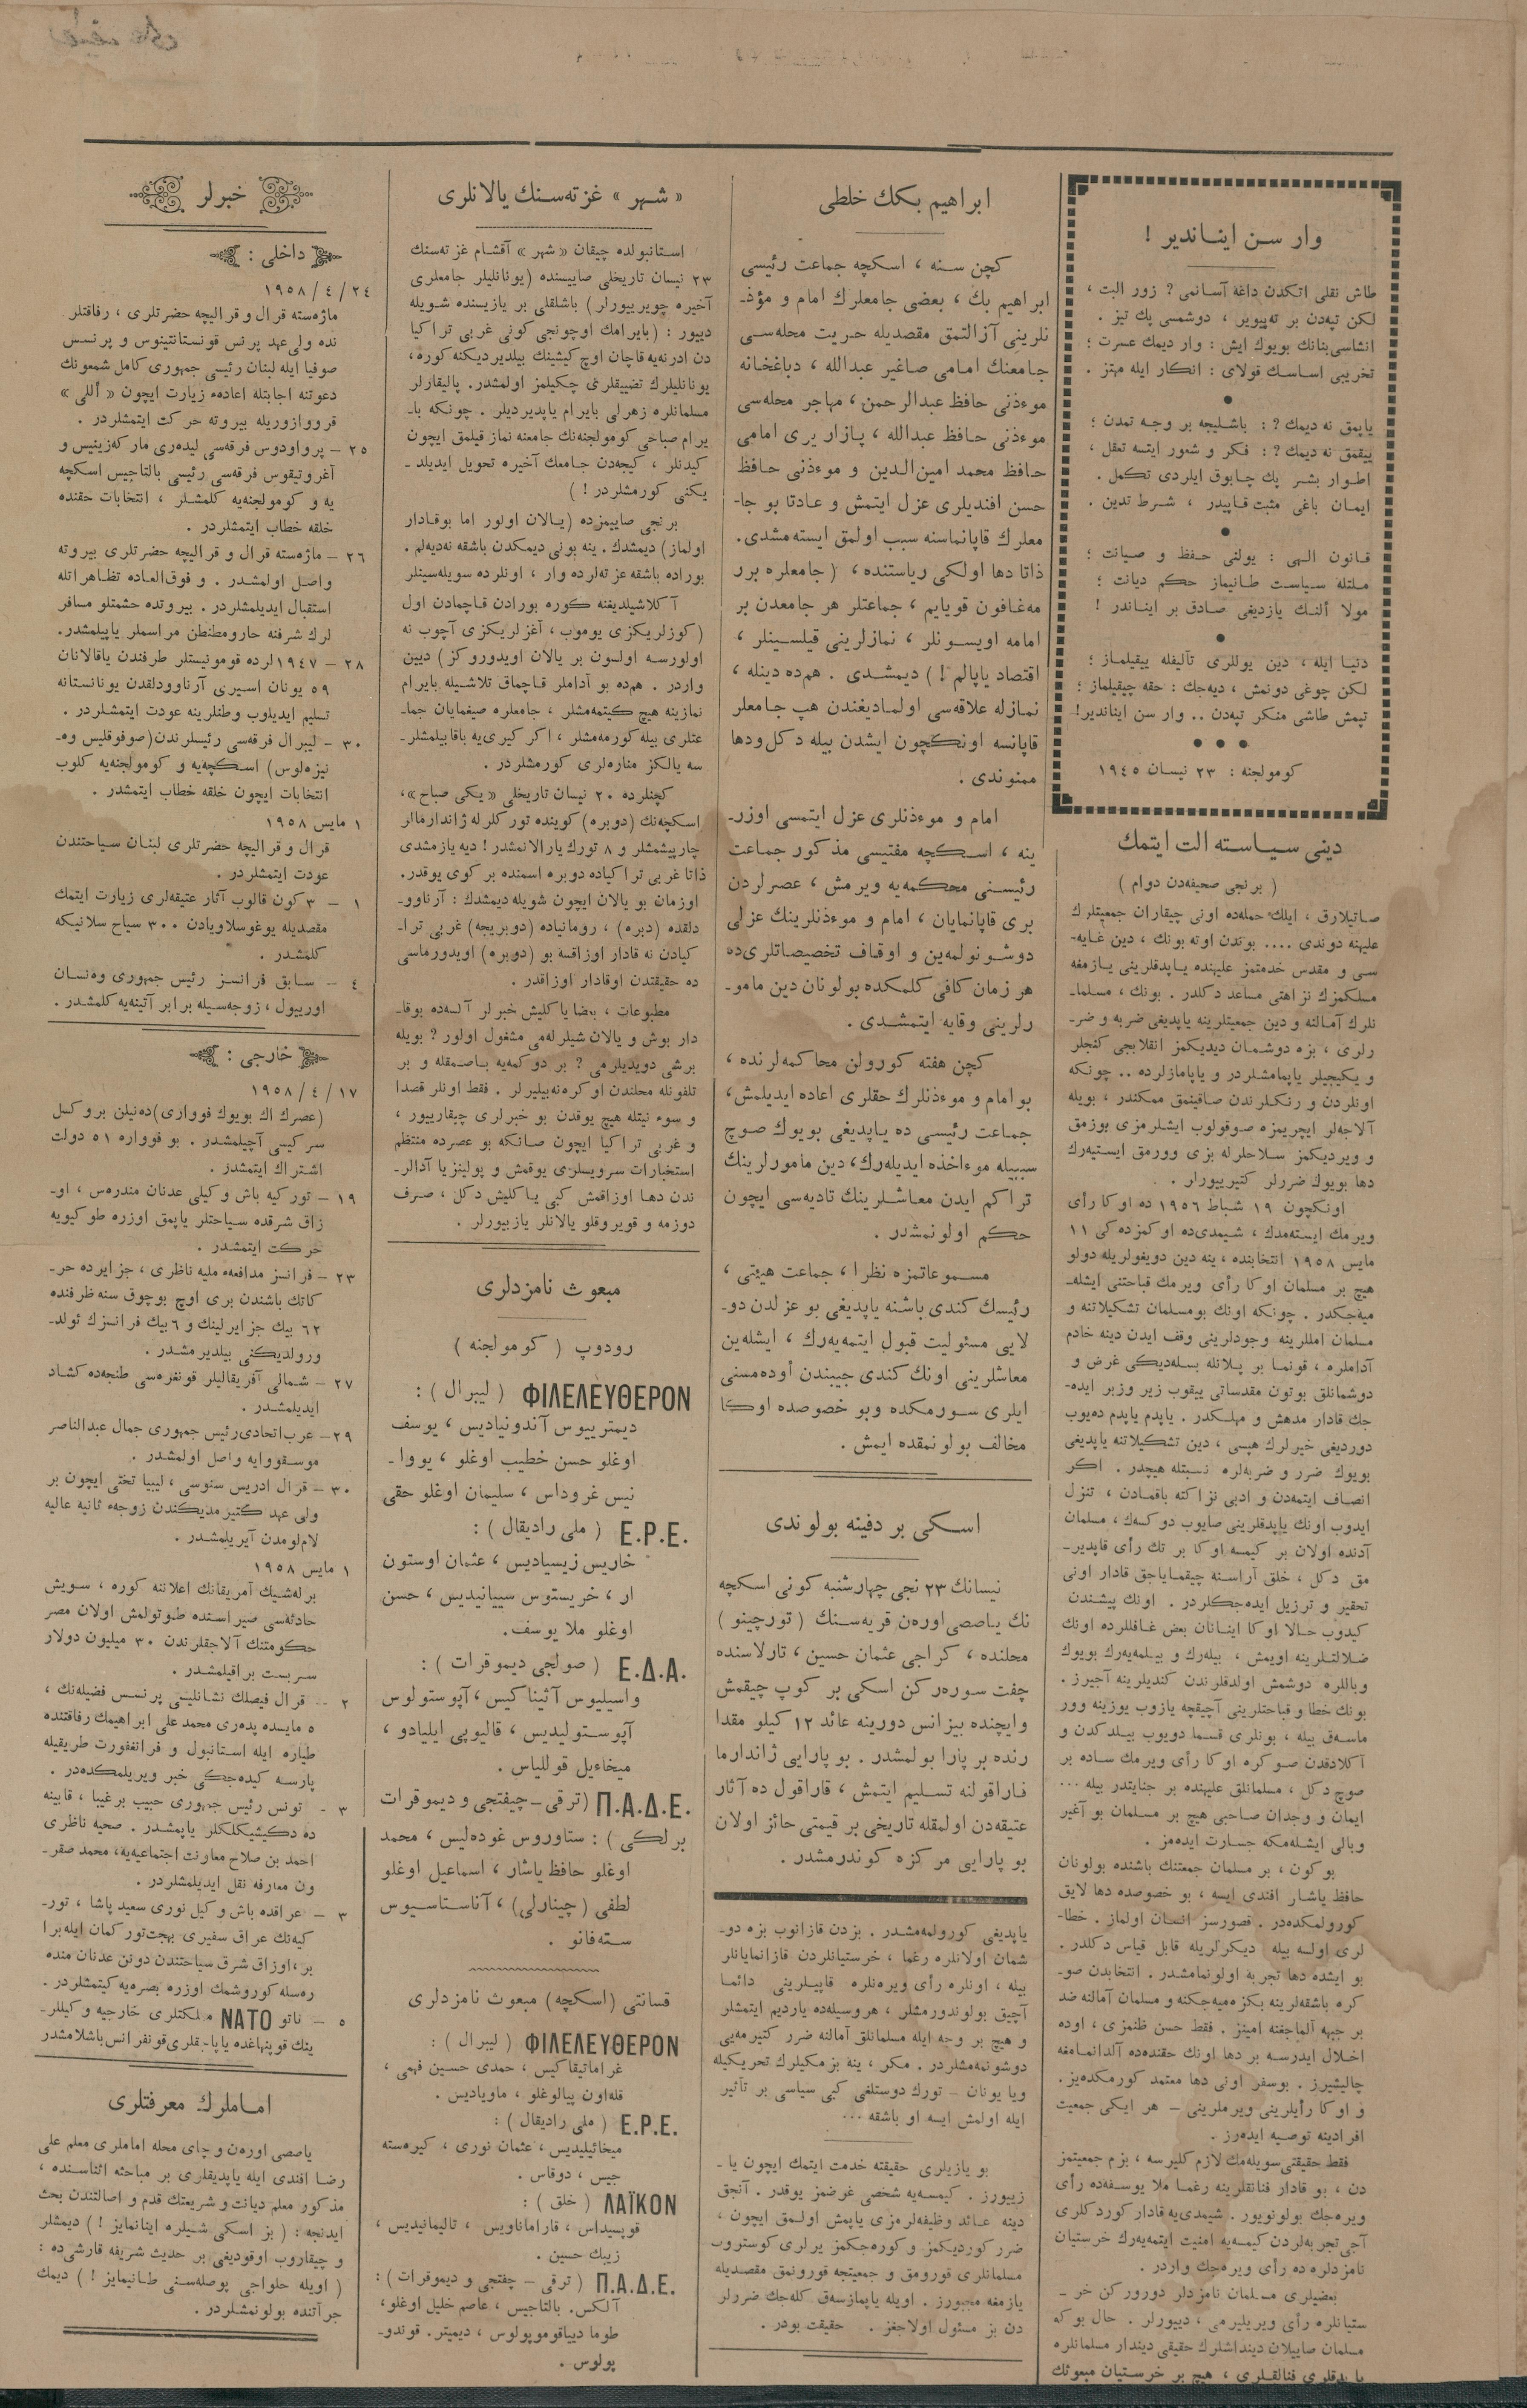 وار سن ایناندیر !
طاش نقلی اتكدن داغه آسانمی ? زور البت ،
لكن تپه‌دن بر ته‌پیویر ، دوشمسی پك تیز .
انشاسی بنانك بویوك ایش : وار دیمك عسرت ؛
تخریبی اساسك قولای : انكار ایله مهتز .
●
یاپمق نه دیمك ? : باشلیجه بر وجه تمدن ؛
ییقمق نه دیمك ? : فكر و شعور ایتسه تعقل ،
اطوار بشر پك چابوق ایلردی تكمل .
ایمان باغی مثبت قاپیدر ، شرط تدین .
●
قانون الهی : یولنی حفظ و صیانت ؛
ملتله سیاست طانیماز حكم دیانت ؛
مولا ألنك یازدیغی صادق بر ایناندر !
●
دنیا ایله ، دین یوللری تألیفله ییقیلماز ؛
لكن چوغی دونمش ، دیه‌جك : حقه چیقیلماز ؛
تپمش طاشی منكر تپه‌دن .. وار سن ایناندیر!
● ● ●
كومولجنه : ٢٣ نیسان ١٩٤٥
دینی سیاسته الت ایتمك
( برنجی صحیفه‌دن دوام )
صاتیلارق ، ایلك حمله‌ده اونی چیقاران جمعیتلرك
علیهنه دوندی .... بوندن اوته بونك ، دین غایه‌-
سی و مقدس خدمتمز علیهنده یاپدقلرینی یازمغه
مسلكمزك نزاهتی مساعد دكلدر . بونك ، مسلما-
نلرك آمالنه و دین جمعیتلرینه یاپدیغی ضربه و ضر-
رلری ، بزه دوشمان دیدیكمز انقلابجی كنجلر
و یكیجیلر یاپمامشلردر و یاپامازلرده .. چونكه
اونلردن و رنكلرندن صاقینمق ممكندر ، بویله
آلاجه‌لر ایچریمزه صوقولوب ایشلرمزی بوزمق
و ویردیكمز سلاحلرله بزی وورمق ایستیه‌رك
دها بویوك ضررلر كتیرییورلر .
اونكچون ١٩ شباط ١٩٥٦ ده اوكا رأی
ویرمك ایسته‌مدك ، شیمدی‌ده اوكمزده‌كی ١١
مایس ١٩٥٨ انتخابنده ، ینه دین دویغولریله دولو
هیچ بر مسلمان اوكا رأی ویرمك قباحتنی ایشله‌-
میه‌جكدر . چونكه اونك بومسلمان تشكیلاتنه و
مسلمان امللرینه وجودلرینی وقف ایدن دینه خادم
آداملره ، قونما بر پلانله بسله‌دیكی غرض و
دوشمانلق بوتون مقدساتی ییقوب زیر وزبر ایده-
جك قادار مدهش و مهلكدر . یاپدم یاپدم ده‌یوب
دوردیغی خیرلرك هپسی ، دین تشكیلاتنه یاپدیغی
بویوك ضرر و ضربه‌لره نسبتله هیچدر . اكر
انصاف ایتمه‌دن و ادبی نزاكته باقمادن ، تنزل
ایدوب اونك یاپدقلرینی صایوب دوكسه‌ك ، مسلمان
آدنده اولان بر كیمسه اوكا بر تك رأی قاپدیر-
مق دكل ، خلق آراسنه چیقمایاجق قادار اونی
تحقیر و ترزیل ایده‌جكلردر . اونك پیشندن
كیدوب حالا اوكا اینانان بعض غافللرده اونك
ضلالتلرینه اویمش ، بیله‌رك و بیلمه‌یه‌رك بویوك
وباللره دوشمش اولدقلرندن كندیلرینه آجیرز .
بونك خطا و قباحتلرینی آچیقچه یازوب یوزینه وور
ماسه‌ق بیله ، بونلری قسما دویوب بیلدكدن و
آكلادقدن صوكره اوكا رأی ویرمك ساده بر
صوچ دكل ، مسلمانلق علیهنده بر جنایتدر بیله ...
ایمان و وجدان صاحبی هیچ بر مسلمان بو آغیر
وبالی ایشله‌مكه جسارت ایده‌مز .
بوكون ، بر مسلمان جمعتنك باشنده بولونان
حافظ یاشار افندی ایسه ، بو خصوصده دها لایق
كورولمكده‌در . قصورسز انسان اولماز . خطا-
لری اولسه بیله دیكرلریله قابل قیاس دكلدر .
بو ایشده دها تجربه اولونمامشدر . انتخابدن صو-
كره باشقه‌لرینه بكزه‌میه‌جكنه و مسلمان آمالنه ضد
بر جبهه آلماجغنه امینز . فقط حسن ظنمزی ، اوده
اخلال ایدرسه بر دها اونك حقنده‌ده آلدانمامغه
چالیشیرز . بوسفر اونی دها معتمد كورمكده‌یز .
و اوكا رأیلرینی ویرملرینی – هر ایكی جمعیت
افرادینه توصیه ایده‌رز .
فقط حقیقتی سویله‌مك لازم كلیرسه ، بزم جمعیتمز
دن ، بو قادار فنانقلرینه رغما ملا یوسفه‌ده رأی
ویره‌جك بولونویور . شیمدی‌یه قادار كوردكلری
آجی تجربه‌لردن كیمسه‌یه امنیت ایتمه‌یه‌رك خرستیان
نامزدلره ده رأی ویره‌جك واردر .
بعضیلری مسلمان نامزدلر دورور كن خر –
ستیانلره رأی ویریلیرمی ، دییورلر . حال بوكه
مسلمان صاییلان دینداشلرك حقیقی دیندار مسلمانلره
یاپدقلری فنالقلری ، هیچ بر خرستیان مبعوثك
ابراهیم بكك خلطی
كچن سنه ، اسكچه جماعت رئیسی
ابراهیم بك ، بعضی جامعلرك امام و مؤذ-
نلرینی آزالتمق مقصدیله حریت محله‌سی
جامعنك امامی صاغیر عبدالله ، دباغخانه
موءذنی حافظ عبدالرحمن ، مهاجر محله‌سی
موءذنی حافظ عبدالله ، پازار یری امامی
حافظ محمد امین‌الدین و موءذنی حافظ
حسن افندیلری عزل ایتمش و عادتا بو جا-
معلرك قاپانماسنه سبب اولمق ایسته‌مشدی.
ذاتا دها اولكی ریاستنده ، ( جامعلره برر
مه‌غافون قویایم ، جماعتلر هر جامعدن بر
امامه اویسونلر ، نمازلرینی قیلسینلر ،
اقتصاد یاپالم !) دیمشدی . هم‌ده دینله ،
نمازله علاقه‌سی اولمادیغندن هپ جامعلر
قاپانسه اونكچون ایشدن بیله دكل‌ودها
ممنوندی .
امام و موءذنلری عزل ایتمسی اوزر-
ینه ، اسكچه مفتیسی مذكور جماعت
رئیسنی محكمه‌یه ویرمش ، عصرلردن
بری قاپانمایان ، امام و موءذنلرینك عزلی
دوشونولمه‌ین و اوقاف تخصیصاتلری‌ده
هر زمان كافی كلمكده بولونان دین مامو-
رلرینی وقایه ایتمشدی .
كچن هفته كورولن محاكمه‌لرنده ،
بوامام و موءذنلرك حقلری اعاده ایدیلمش،
جماعت رئیسی ده یاپدیغی بویوك صوچ
سببیله موءاخذه ایدیله‌رك، دین مامورلرینك
تراكم ایدن معاشلرینك تادیه‌سی ایچون
حكم اولونمشدر .
مسموعاتمزه نظرا ، جماعت هیئتی ،
رئیسك كندی باشنه یاپدیغی بو عزلدن دو-
لایی مسئولیت قبول ایتمه‌یه‌رك ، ایشله‌ین
معاشلرینی اونك كندی جیبندن أوده‌مسنی
ایلری سورمكده وبو خصوصده اوكا
مخالف بولونمقده ایمش .
اسكی بر دفینه بولوندی
نیسانك ٢٣ نجی چهارشنبه كونی اسكچه
نك یاصصی‌اورەن قریه‌سنك ( تورچینو )
محلنده ، كراجی عثمان حسین ، تارلاسنده
چفت سوره‌ركن اسكی بر كوپ چیقمش
وایچنده بیزانس دورینه عائد ١٢ كیلو مقدا
رنده بر پارا بولمشدر . بو پارایی ژاندارما
قاراقولنه تسلیم ایتمش ، قاراقول ده آثار
عتیقه‌دن اولمقله تاریخی بر قیمتی حائز اولان
بو پارایی مركزه كوندرمشدر .
یاپدیغی كورولمه‌مشدر . بزدن قازانوب بزه دو-
شمان اولانلره رغما ، خرستیانلردن قازانمایانلر
بیله ، اونلره رأی ویره‌نلره قاپیلرینی دائما
آچیق بولوندورمشلر ، هروسیله‌ده یاردیم ایتمشلر
و هیچ بر وجه ایله مسلمانلق آمالنه ضرر كتیرمه‌یی
دوشونمه‌مشلردر . مكر ، ینه بزمكیلرك تحریكیله
ویا یونان – تورك دوستلغی كبی سیاسی بر تأثیر
ایله اولمش ایسه او باشقه ...
بو یازیلری حقیقته خدمت ایتمك ایچون یا –
زییورز . كیمسه‌یه شخصی غرضمز یوقدر . آنجق
دینه عائد وظیفه‌لرمزی یاپمش اولمق ایچون ،
ضرر كوردیكمز و كوره‌جكمز یرلری كوستروب
مسلمانلری قورومق و جمعیتجه قورونمق مقصدیله
یازمغه مجبورز . اویله یاپمازسه‌ق كله‌جك ضررلر
دن بز مسئول اولاجغز . حقیقت بودر .
« شهر » غزته‌سنك یالانلری
استانبولده چیقان « شهر » آقشام غزته‌سنك
٢٣ نیسان تاریخلی صاییسنده (یونانلیلر جامعلری
آخیره چویرییورلر) باشلقلی بر یازیسنده شویله
دییور : (بایرامك اوچونجی كونی غربی تراكیا
دن ادرنه‌یه قاچان اوچ كیشینك بیلدیردیكنه كوره،
یونانلیلرك تضییقلری چكیلمز اولمشدر. پالیقارلر
مسلمانلره زهرلی بایرام یاپدیردیلر . چونكه با-
یرام صباحی كومولجنه‌نك جامعنه نماز قیلمق ایچون
كیدنلر ، كیجه‌دن جامعك آخیره تحویل ایدیلد –
یكنی كورمشلردر ! )
برنجی صاییمزده (یالان اولور اما بوقادار
اولماز) دیمشدك . ینه بونی دیمكدن باشقه نه‌دیه‌لم .
بوراده باشقه غزته‌لرده وار ، اونلرده سویله‌سینلر
آكلاشیلدیغنه كوره بورادن قاچمادن اول
(كوزلریكزی یوموب ، آغزلریكزی آچوب نه
اولورسه اولسون بر یالان اویدوروكز) دیین
واردر . هم‌ده بو آداملر قاچماق تلاشیله بایرام
نمازینه هیچ كیتمه‌مشلر ، جامعلره صیغمایان جما-
عتلری بیله كورمه‌مشلر ، اكر كیری‌یه باقابیلمشلر-
سه یالكز مناره‌لری كورمشلردر .
كچنلرده ٢٠ نیسان تاریخلی «یكی صباح»،
اسكچه‌نك (دوبره) كوینده توركلرله ژاندارمالر
چارپیشمشلر و ٨ تورك یارالانمشدر ! دیه یازمشدی
ذاتا غربی تراكیاده دوبره اسمنده بر كوی یوقدر.
اوزمان بو یالان ایچون شویله دیمشدك : آرناوو-
دلقده (دبره) ، رومانیاده (دوبریجه) غربی ترا-
كیادن نه قادار اوزاقسه بو (دوبره) اویدورماسی
ده حقیقتدن اوقادار اوزاقدر .
مطبوعات ، بعضا یاكلیش خبرلر آلسه‌ده بوقا-
دار بوش و یالان شیلرله‌می مشغول اولور ? بویله
برشی دویدیلرمی ? بر دوكمه‌یه باصمقله و بر
تلفونله محلندن اوكره‌نه‌بیلیرلر . فقط اونلر قصدا
و سوء نیتله هیچ یوقدن بو خبرلری چیقارییور ،
و غربی تراكیا ایچون صانكه بو عصرده منتظم
استخبارات سرویسلری یوقمش و پولینزیا آدالر-
ندن دها اوزاقمش كبی یاكلیش دكل ، صرف
دوزمه و قویروقلو یالانلر یازییورلر .
مبعوث نامزدلری
رودوپ ( كومولجنه )
ΦΙΛΕΛΕΥΘΕΡΟΝ ( لیبرال ) :
دیمترییوس آندونیادیس ، یوسف
اوغلو حسن خطیب اوغلو ، یووا –
نیس غروداس ، سلیمان اوغلو حقی
Ε.Ρ.Ε. ( ملی رادیقال ) :
خاریس زیسیادیس ، عثمان اوستون
ار ، خریستوس سییانیدیس ، حسن
اوغلو ملا یوسف.
Ε.Δ.Α. ( صولجی دیموقرات ) :
واسیلیوس آثیناكیس ، آپوستولوس
آپوستولیدیس ، قالیوپی ایلیادو ،
میخاءیل قوللیاس .
Π.Α.Δ.Ε. (ترقی – چیفتجی و دیموقرات
برلكی ) : ستاوروس غوده‌لیس ، محمد
اوغلو حافظ یاشار ، اسماعیل اوغلو
لطفی (چینارلی) ، آناستاسیوس
سته‌فانو .
قسانتی (اسكچه) مبعوث نامزدلری
ΦΙΛΕΛΕΥΘΕΡΟΝ ( لیبرال ) :
غراماتیقاكیس ، حمدی حسین فهمی ،
قله‌اون پیالوغلو ، ماویادیس .
Ε.Ρ.Ε. ( ملی رادیقال ) :
میخائیلیدیس ، عثمان نوری ، كیره‌سته
جیس ، دوقاس .
ΛΑΪΚΟΝ ( خلق ) :
قوپسیداس ، قاراماناویس ، تالیمانیدیس ،
زیبك حسین .
Π.Α.Δ.Ε. ( ترقی – چفتجی و دیموقرات ) :
آلكس. بالتاجیس ، عاصم خلیل اوغلو،
طوما دیباقوموپولوس ، دیمیتر. قوندو-
پولوس .
خبرلر
داخلی :
٢٤ / ٤ / ١٩٥٨
ماژه‌سته قرال و قرالیچه حضرتلری ، رفاقتلر
نده ولی‌عهد پرنس قونستانتینوس و پرنسس
صوفیا ایله لبنان رئیسی جمهوری كامل شمعونك
دعوتنه اجابتله اعادهء زیارت ایچون « أللی »
قرووازوریله بیروته حركت ایتمشلردر .
٢٥ – پرواودوس فرقه‌سی لیده‌ری ماركه‌زینیس و
آغروتیقوس فرقه‌سی رئیسی بالتاجیس اسكچه
یه و كومولجنه‌یه كلمشلر ، انتخابات حقنده
خلقه خطاب ایتمشلردر .
٢٦ – ماژه‌سته قرال و قرالیچه حضرتلری بیروته
واصل اولمشدر . و فوق‌العاده تظاهراتله
استقبال ایدیلمشلردر . بیروتده حشمتلو مسافر
لرك شرفنه حارومطنطن مراسملر یاپیلمشدر.
٢٨ – ١٩٤٧لرده قومونیستلر طرفندن یاقالانان
٥٩ یونان اسیری آرناوودلقدن یونانستانه
تسلیم ایدیلوب وطنلرینه عودت ایتمشلردر .
٣٠ – لیبرال فرقه‌سی رئیسلرندن (صوفوقلیس وه-
نیزه‌لوس) اسكچه‌یه و كومولجنه‌یه كلوب
انتخابات ایچون خلقه خطاب ایتمشدر .
١ مایس ١٩٥٨
قرال و قرالیچه حضرتلری لبنان سیاحتندن
عودت ایتمشلردر .
١ – ٣ كون قالوب آثار عتیقه‌لری زیارت ایتمك
مقصدیله یوغوسلاویادن ٣٠٠ سیاح سلانیكه
كلمشدر .
٤ – سابق فرانسز رئیس جمهوری وه‌نسان
اوریول ، زوجه‌سیله برابر آتینه‌یه كلمشدر .
خارجی :
١٧ / ٤ / ١٩٥٨
(عصرك اك بویوك فوواری) ده‌نیلن بروكسل
سركیسی آچیلمشدر . بو فوواره ٥١ دولت
اشتراك ایتمشدز .
١٩ – توركیه باش وكیلی عدنان مندره‌س ، او-
زاق شرقده سیاحتلر یاپمق اوزره طوكیویه
حركت ایتمشدر .
٢٣ – فرانسز مدافعهء ملیه ناظری ، جزایرده حر-
كاتك باشندن بری اوچ بوچوق سنه ظرفنده
٦٢ بیك جزایرلینك و ٦ بیك فرانسزك ئولد-
ورولدیكنی بیلدیرمشدر .
٢٧ – شمالی آفریقالیلر قونغره‌سی طنجه‌ده كشاد
ایدیلمشدر .
٢٩– عرب‌اتحادی رئیس جمهوری جمال عبدالناصر
موسقووایه واصل اولمشدر .
٣٠ – قرال ادریس سنوسی ، لیبیا تختی ایچون بر
ولی عهد كتیرمدیكندن زوجهء ثانیه عالیه
لام‌لومدن آیریلمشدر .
١ مایس ١٩٥٨
برله‌شیك آمریقانك اعلاننه كوره ، سویش
حادثه‌سی صیراسنده طوتولمش اولان مصر
حكومتنك آلاجقلرندن ٣٠ میلیون دولار
سربست براقیلمشدر .
٢ – قرال فیصلك نشانلیسی پرنسس فضیله‌نك ،
٥ مایسده پدەری محمد علی ابراهیمك رفاقتنده
طیاره ایله استانبول و فرانغفورت طریقیله
پارسه كیده‌جكی خبر ویریلمكده‌در .
٣ – تونس رئیس جمهوری حبیب برغیبا ، قابینه
ده دكیشیكلكلر یاپمشدر . صحیه ناظری
احمد بن صلاح معاونت اجتماعیه‌یه، محمد صفر-
ون معارفه نقل ایدیلمشلردر .
٣ – عراقده باش وكیل نوری سعید پاشا ، تور-
كیه‌نك عراق سفیری بهجت‌توركمان ایله‌برا
بر ، اوزاق شرق سیاحتندن دونن عدنان منده
ره‌سله كوروشمك اوزره بصره‌یه كیتمشلردر .
٥ – ناتو NATO مملكتلری خارجیه وكیللر-
ینك قوپنهاغده یاپاجقلری قونفرانس‌باشلامشدر
اماملرك معرفتلری
یاصصی اورەن و چای محله اماملری معلم علی
رضا افندی ایله یاپدیقلری بر مباحثه اثناسنده ،
مذكور معلم دیانت و شریعتك قدم و اصالتندن بحث
ایدنجه : ( بز اسكی شیلره اینانمایز ! ) دیمشلر
و چیقاروب اوقودیغی بر حدیث شریفه قارشی‌ده :
( اویله حلواجی پوصله‌سنی طانیمایز ! ) دیمك
جرآتنده بولونمشلردر .